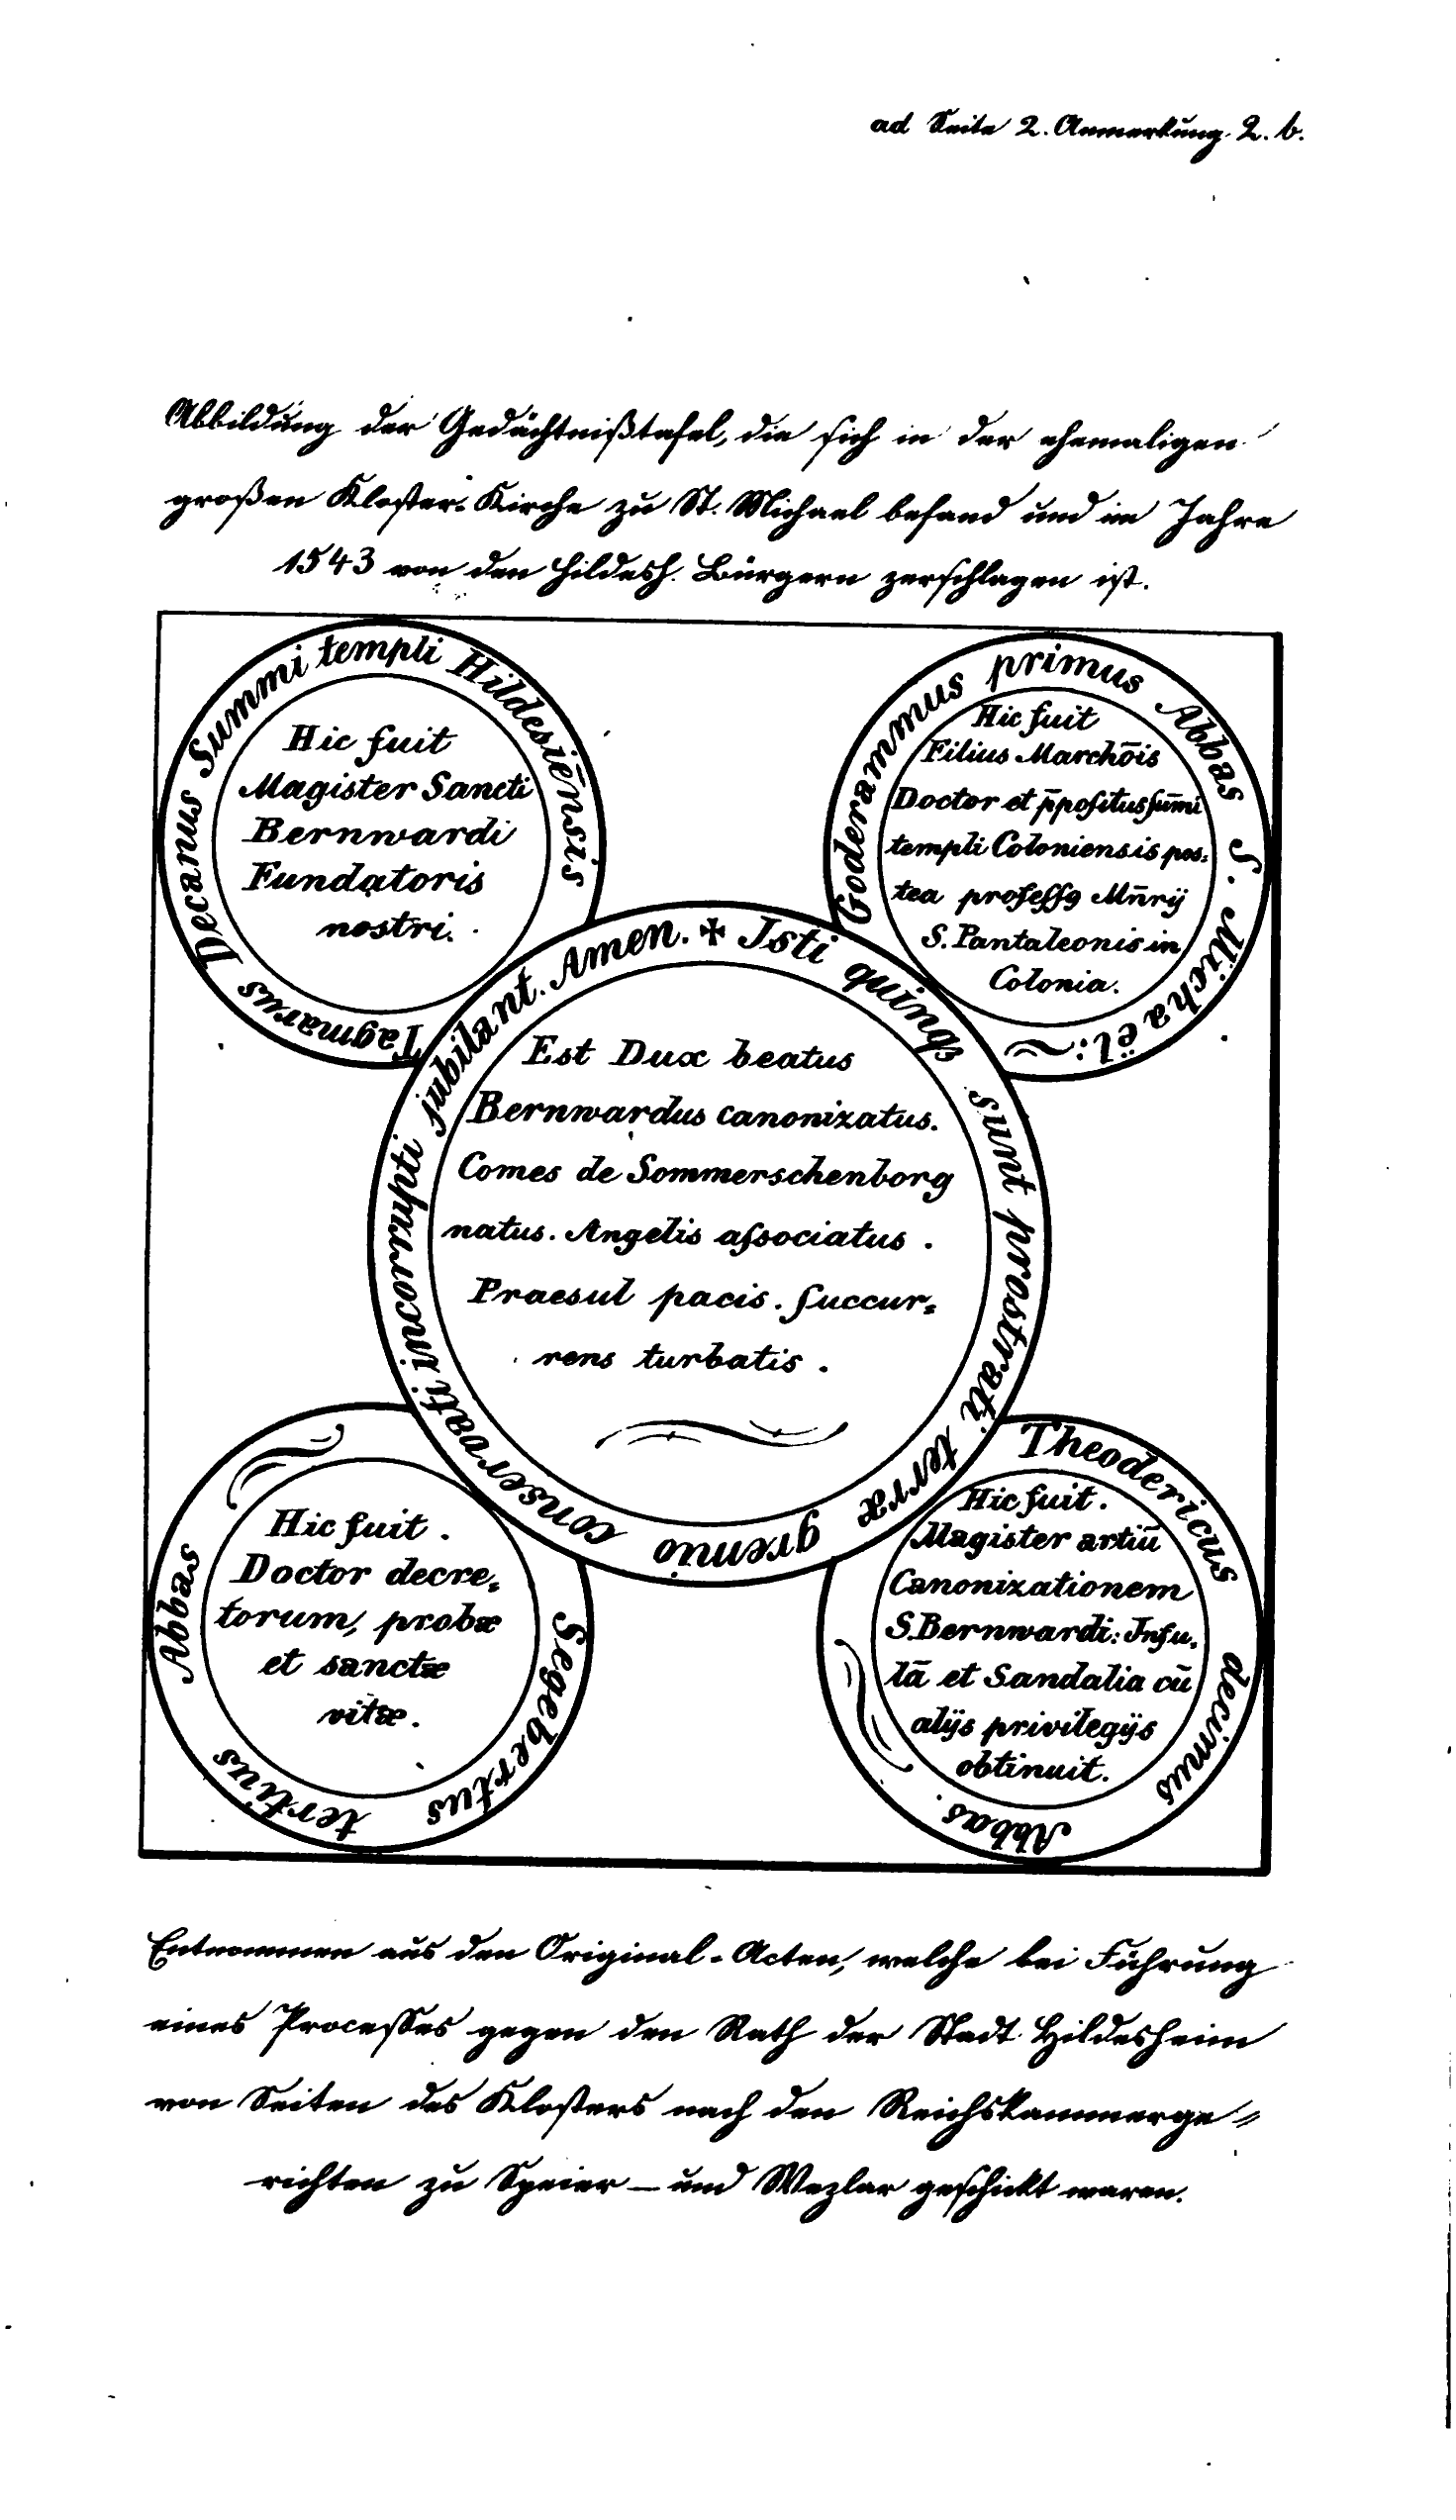 ad Seite 2. Anmerkung. 2. b.
Abbildung der Gedächtnißtafel, die sich in der ehemaligen
großen Kloster-Kirche zu St. Michael befand und im Jahre
1543 von den Hildesh. Bürgern zerschlagen ist.
Tagmarus Decanus Summi templi Hildesiēnsis
Hic fuit
Magister Sancti
Bernwardi
Fundatoris
nostri.
Goderammus primus Abbas S. Michaël:
Hic fuit
Filius Marchōis
Doctor et p̄positus sum̄i
templi Coloniensis pos-
tea professꝯ Mn̄rij
S. Pantaleonis in
Colonia.
✠ Isti quinqꝫ sunt prostrati terræ gremio conservati incorrupti jubilant. Amen.
Est Dux beatus
Bernwardus canonizatus.
Comes de Sommerschenborg
natus. Angelis associatus.
Praesul pacis. succur-
rens turbatis.
Segebertus tertius Abbas
Hic fuit.
Doctor decre-
torum, probæ
et sanctæ
vitæ.
Theodericus decimus Abbas.
Hic fuit.
Magister artiū
Canonizationem
S. Bernwardi: Infu-
lā et Sandalia cū
alijs privilegijs
obtinuit.
Entnommen aus den Original-Acten, welche bei Führung
eines Processes gegen den Rath der Stadt Hildesheim
von Seiten des Klosters nach den Reichskammerge-
richten zu Speier – und Wezlar geschickt waren.